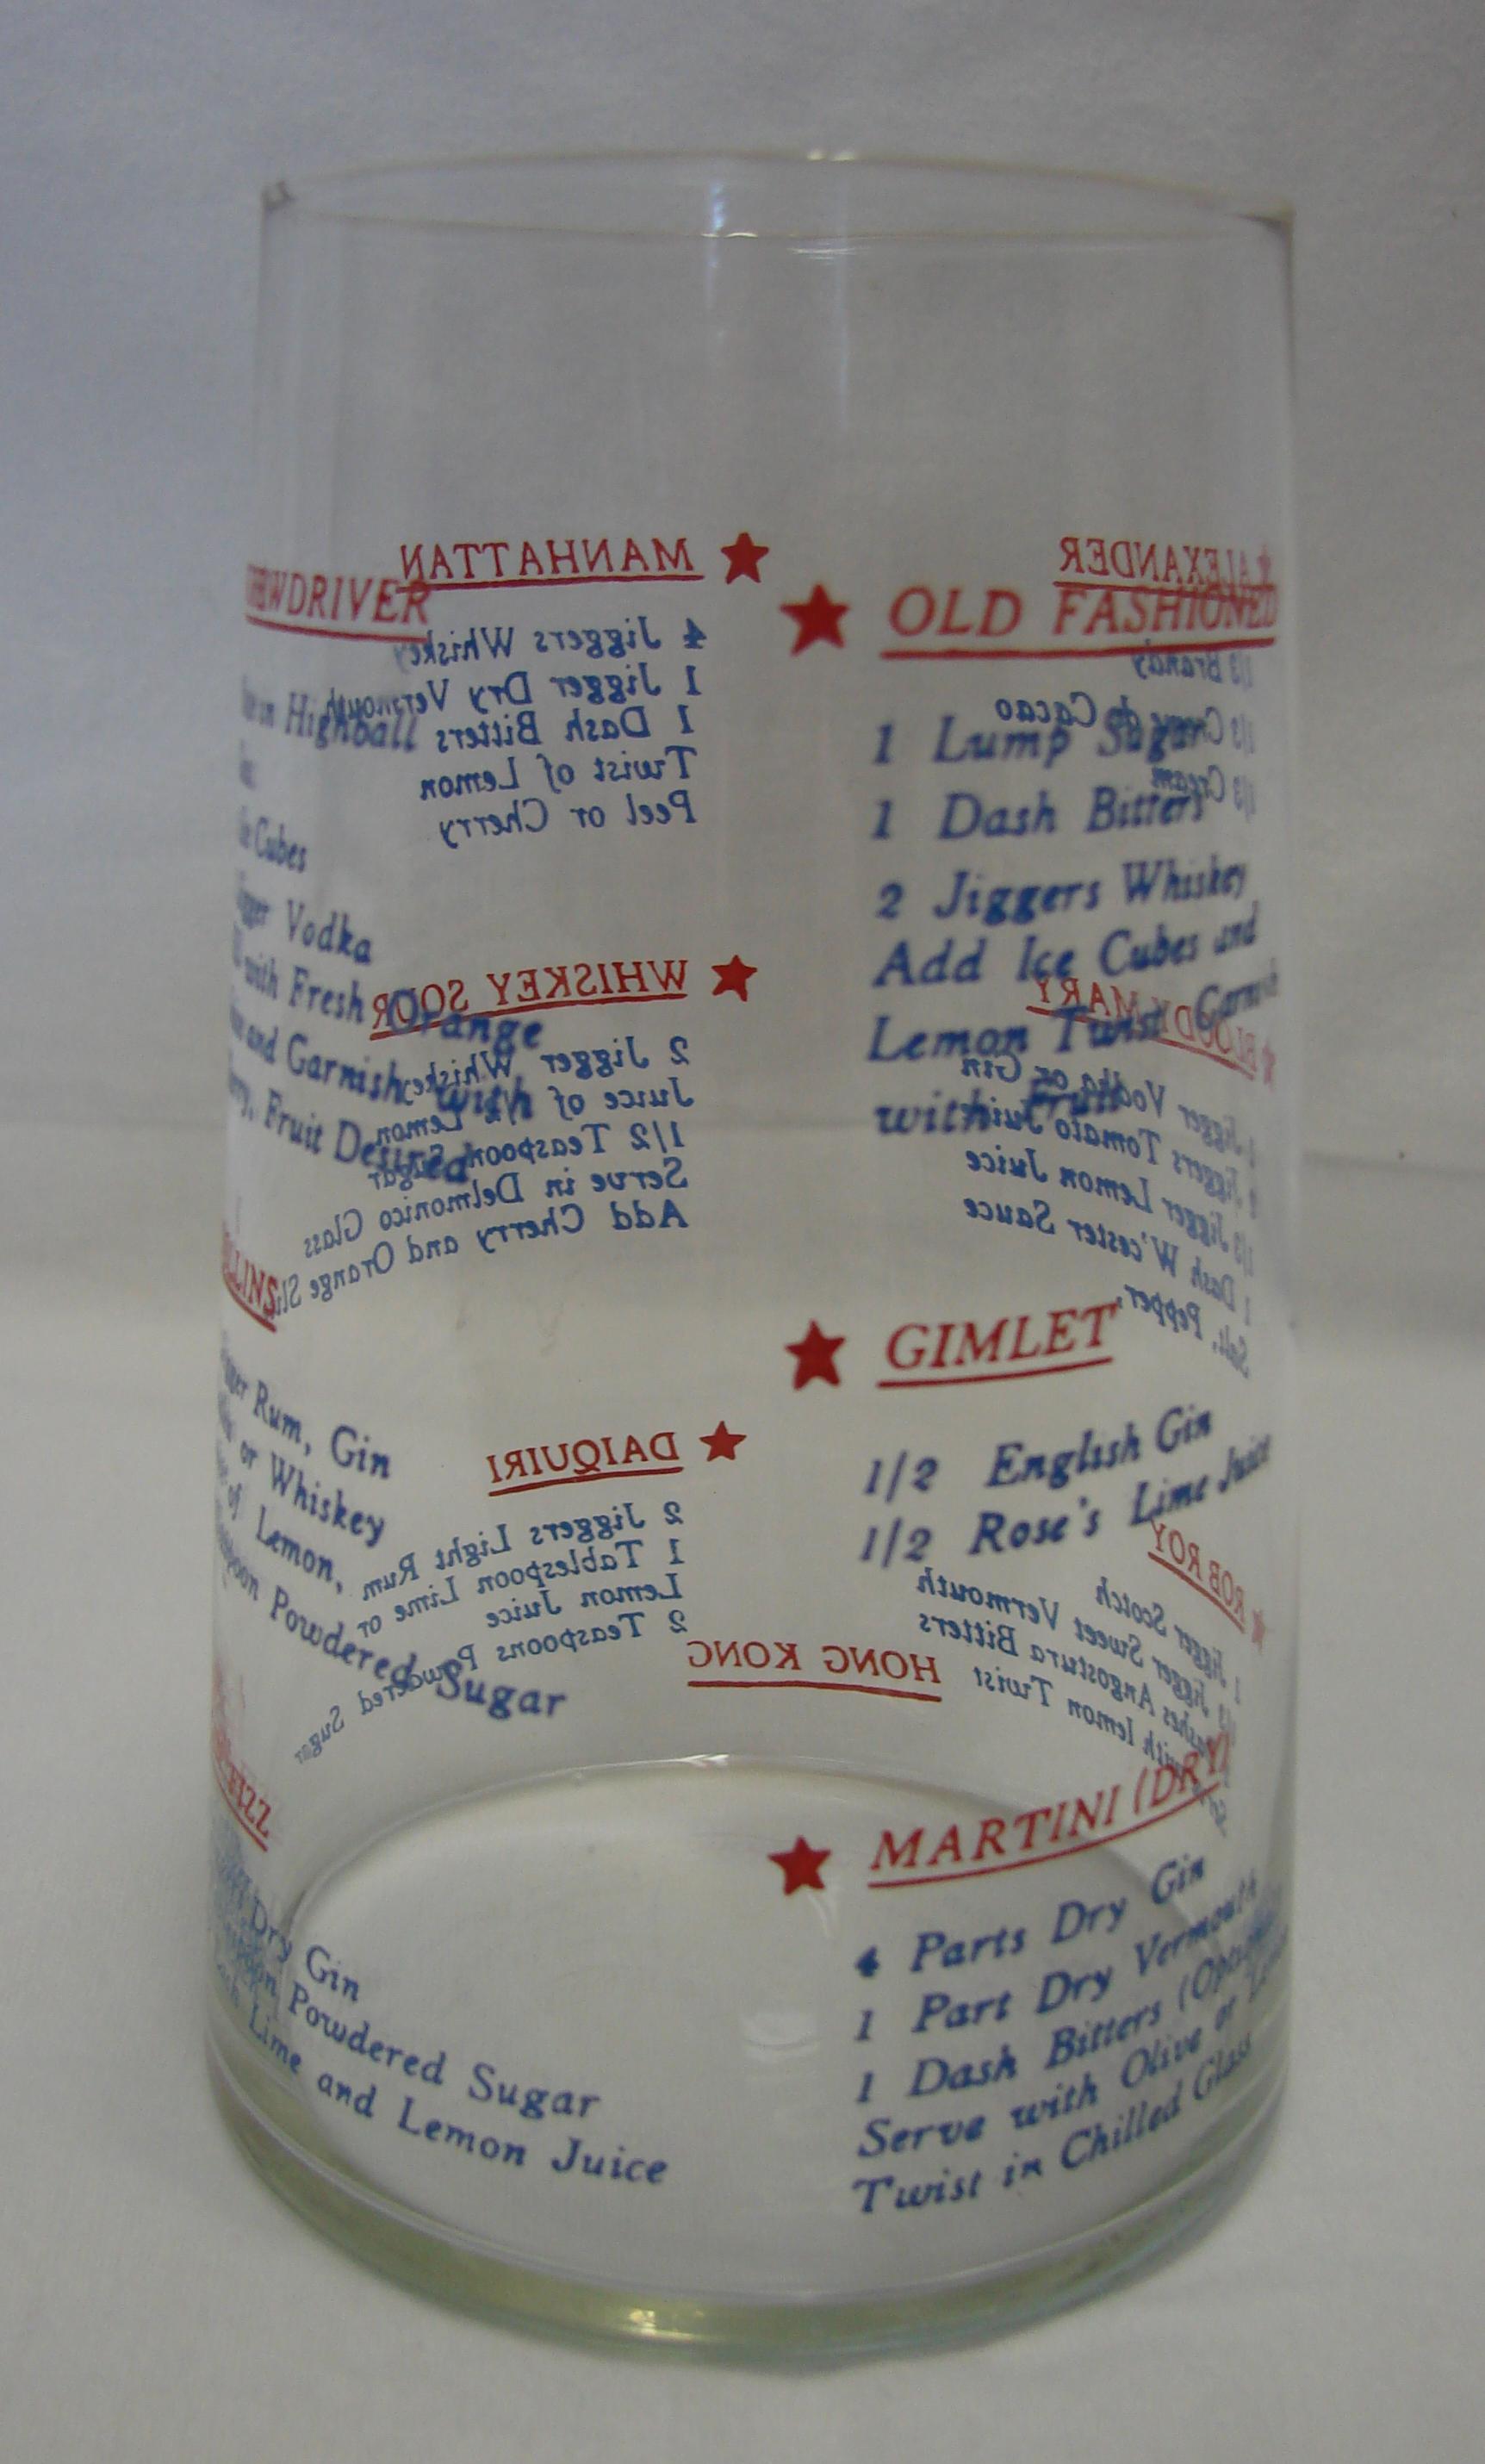 OLD FASHIONED
1 Lump Sugar
1 Dash Bitters
2 Jiggers Whiskey
Add Ice Cubes and
Lemon Twist
with Fruit
GIMLET
1/2 English Gin
1/2 Rose's Lime Juice
MARTINI (DRY)
4 Parts Dry Gin
1 Part Dry Vermouth
1 Dash Bitters
Serve with Olive or
Twist in Chilled Glass
Highball
Cubes
Vodka
with Fresh Orange
and Garnish with
Fruit Desired
Rum, Gin
or Whiskey
of Lemon,
Powdered Sugar
Dry Gin
Powdered Sugar
Lime and Lemon Juice
MANHATTAN
4 Jiggers Whiskey
1 Jigger Dry Vermouth
1 Dash Bitters
Twist of Lemon
Peel or Cherry
WHISKEY SOUR
2 Jigger Whiskey
Juice of 1/2 Lemon
1/2 Teaspoon Sugar
Serve in Delmonico Glass
Add Cherry and Orange
DAIQUIRI
2 Jiggers Light Rum
1 Tablespoon Lime or
Lemon Juice
2 Teaspoons Powdered Sugar
HONG KONG
ALEXANDER
1/3 Brandy
1/3 Cacao
1/3 Cream
BLOODY MARY
1 Jigger Vodka or Gin
Jiggers Tomato Juice
1/3 Jigger Lemon Juice
1 Dash W'cester Sauce
Salt, Pepper,
ROB ROY
1 Jigger Scotch
Jigger Sweet Vermouth
Angostura Bitters
with lemon Twist